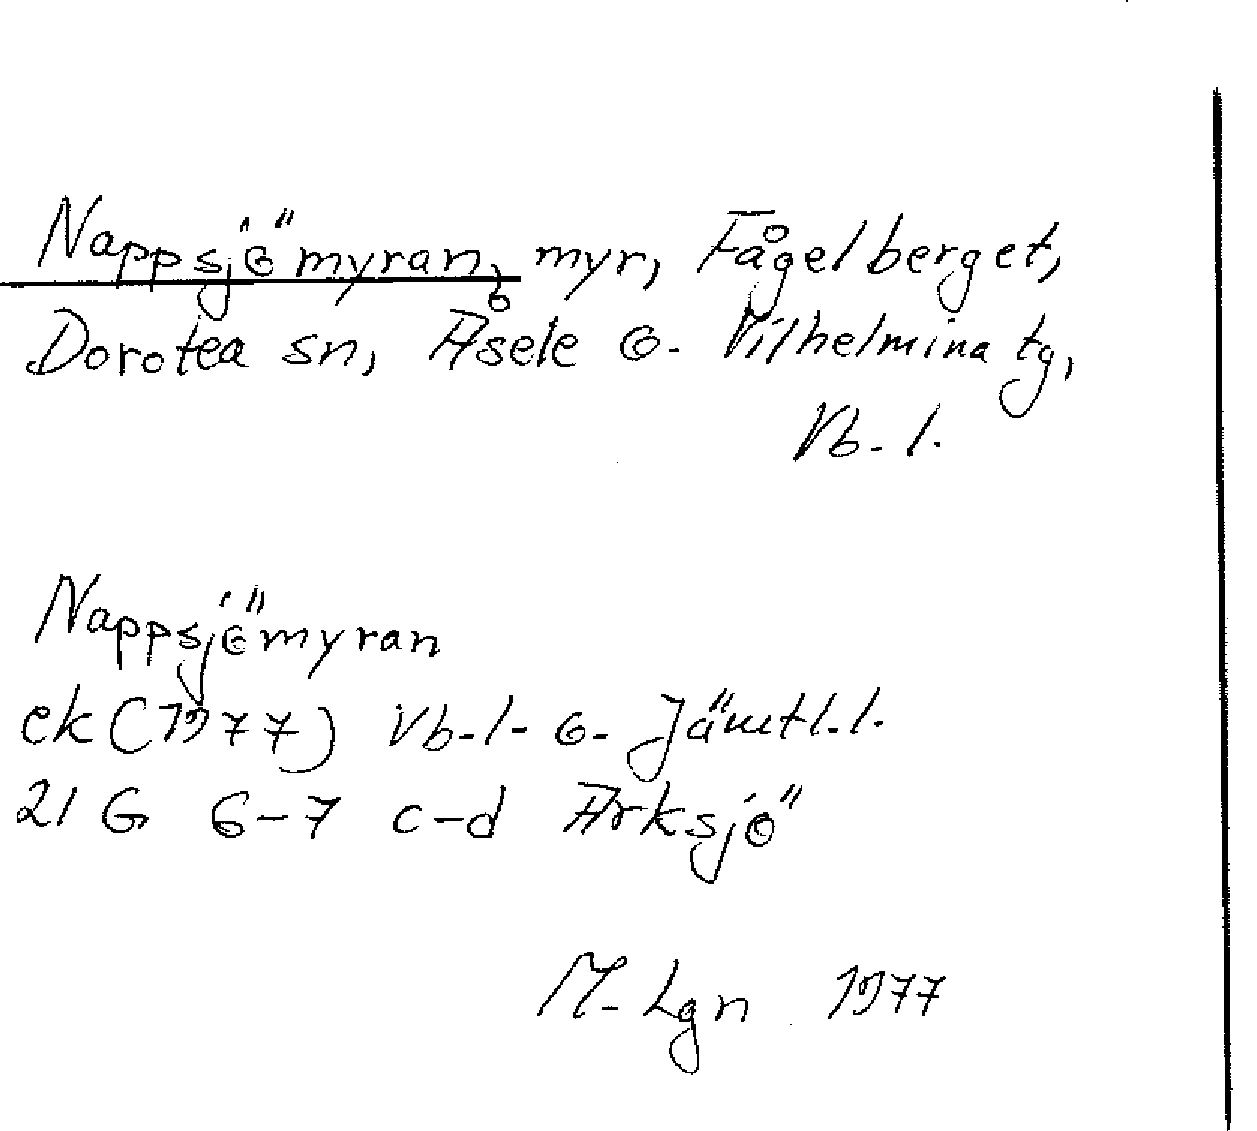 Nappsjömyran, myr, Fågelberget,
Dorotea sn, Åsele o. Vilhelmina tg,
Vb. l.
Nappsjömyran
ek (1977) Vb. l. o. Jämtl. l.
21 G 6-7 c-d Arksjö
M. Lgn 1977